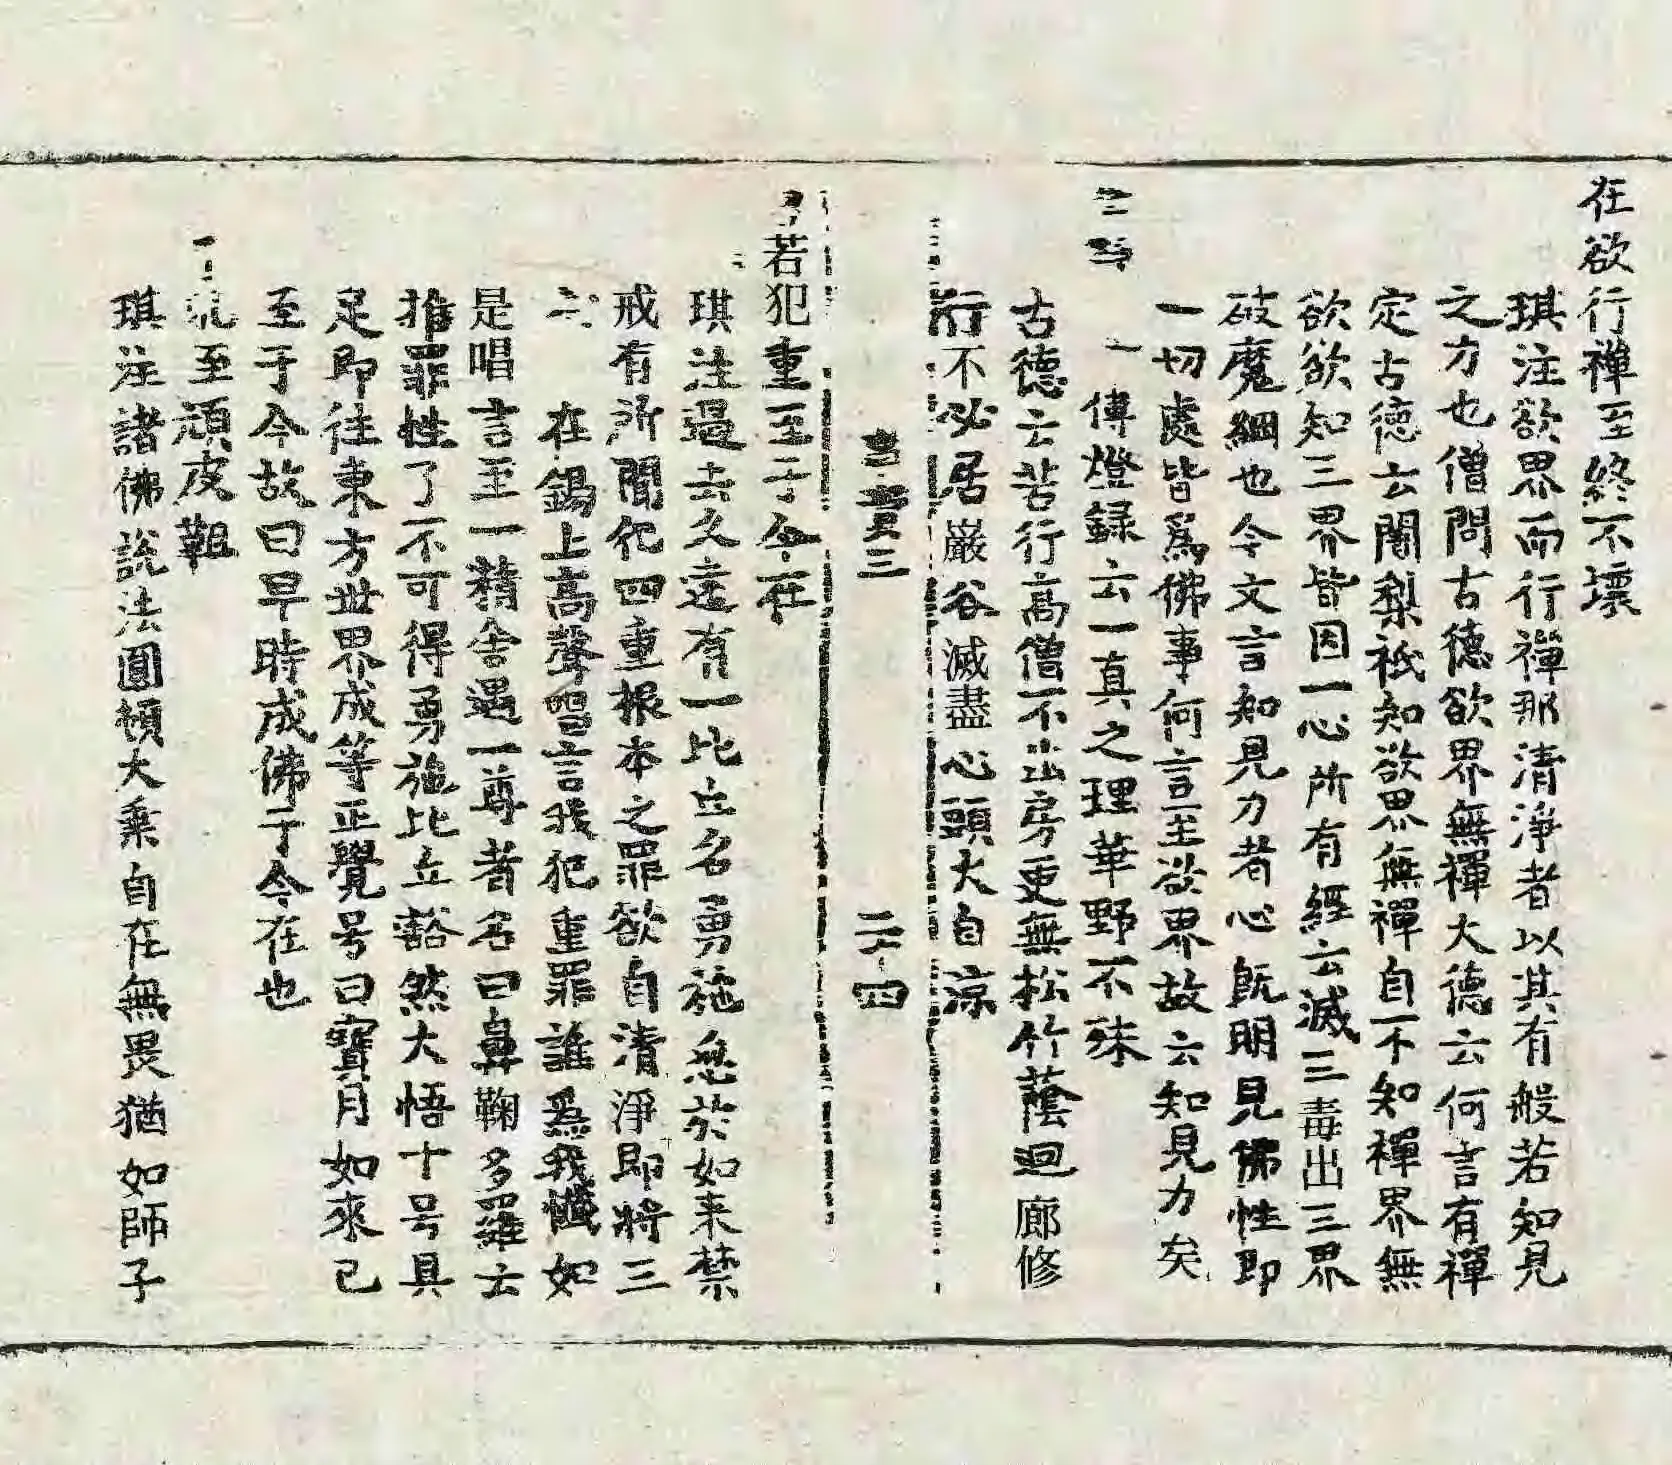 在欲行禪至終不壞
琪注欲界而行禪那清淨者以其有般若知見
之方也僧問古德欲界無禪大德云何言有禪
定古德云闍梨祇知欲界無禪自不知禪界無
欲欲知三界皆因一心所有經云滅三毒出三界
破魔網也令文言知見力者心既明見佛性即
一切處皆爲佛事何言至欲界故云知見力矣
傳燈録云一真之理華野不殊
古德云苦行高僧不出房更無松竹蔭迴廊修
行不必居巖谷滅盡心頭大自涼
三 二十四
若犯重至于今在
琪注過去久遠有一比丘名勇施忽於如来禁
戒有所闕犯四重根本之罪欲自清淨即將三
在錫上高聲唱言我犯重罪誰爲我懺如
是唱言至一精舍遇一尊者名曰鼻鞠多羅云
推罪性了不可得勇施比丘豁然大悟十号具
足即往東方世界成等正覺号曰寶月如來已
至于今故曰早時成佛于今在也
至頑皮靼
琪注諸佛說法圓頓大乘自在無畏猶如師子